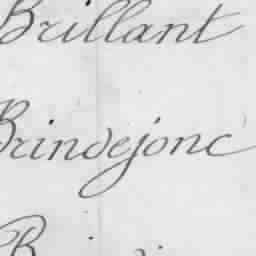 Brillant
Brindejonc